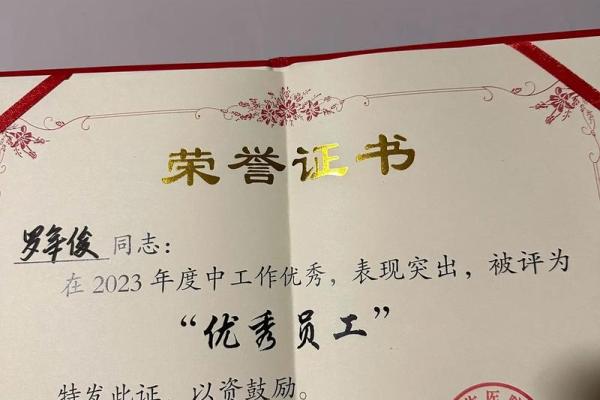 荣誉证书
罗军俊 同志：
在 2023 年度中工作优秀，表现突出，被评为
“优秀员工”
特发此证，以资鼓励。